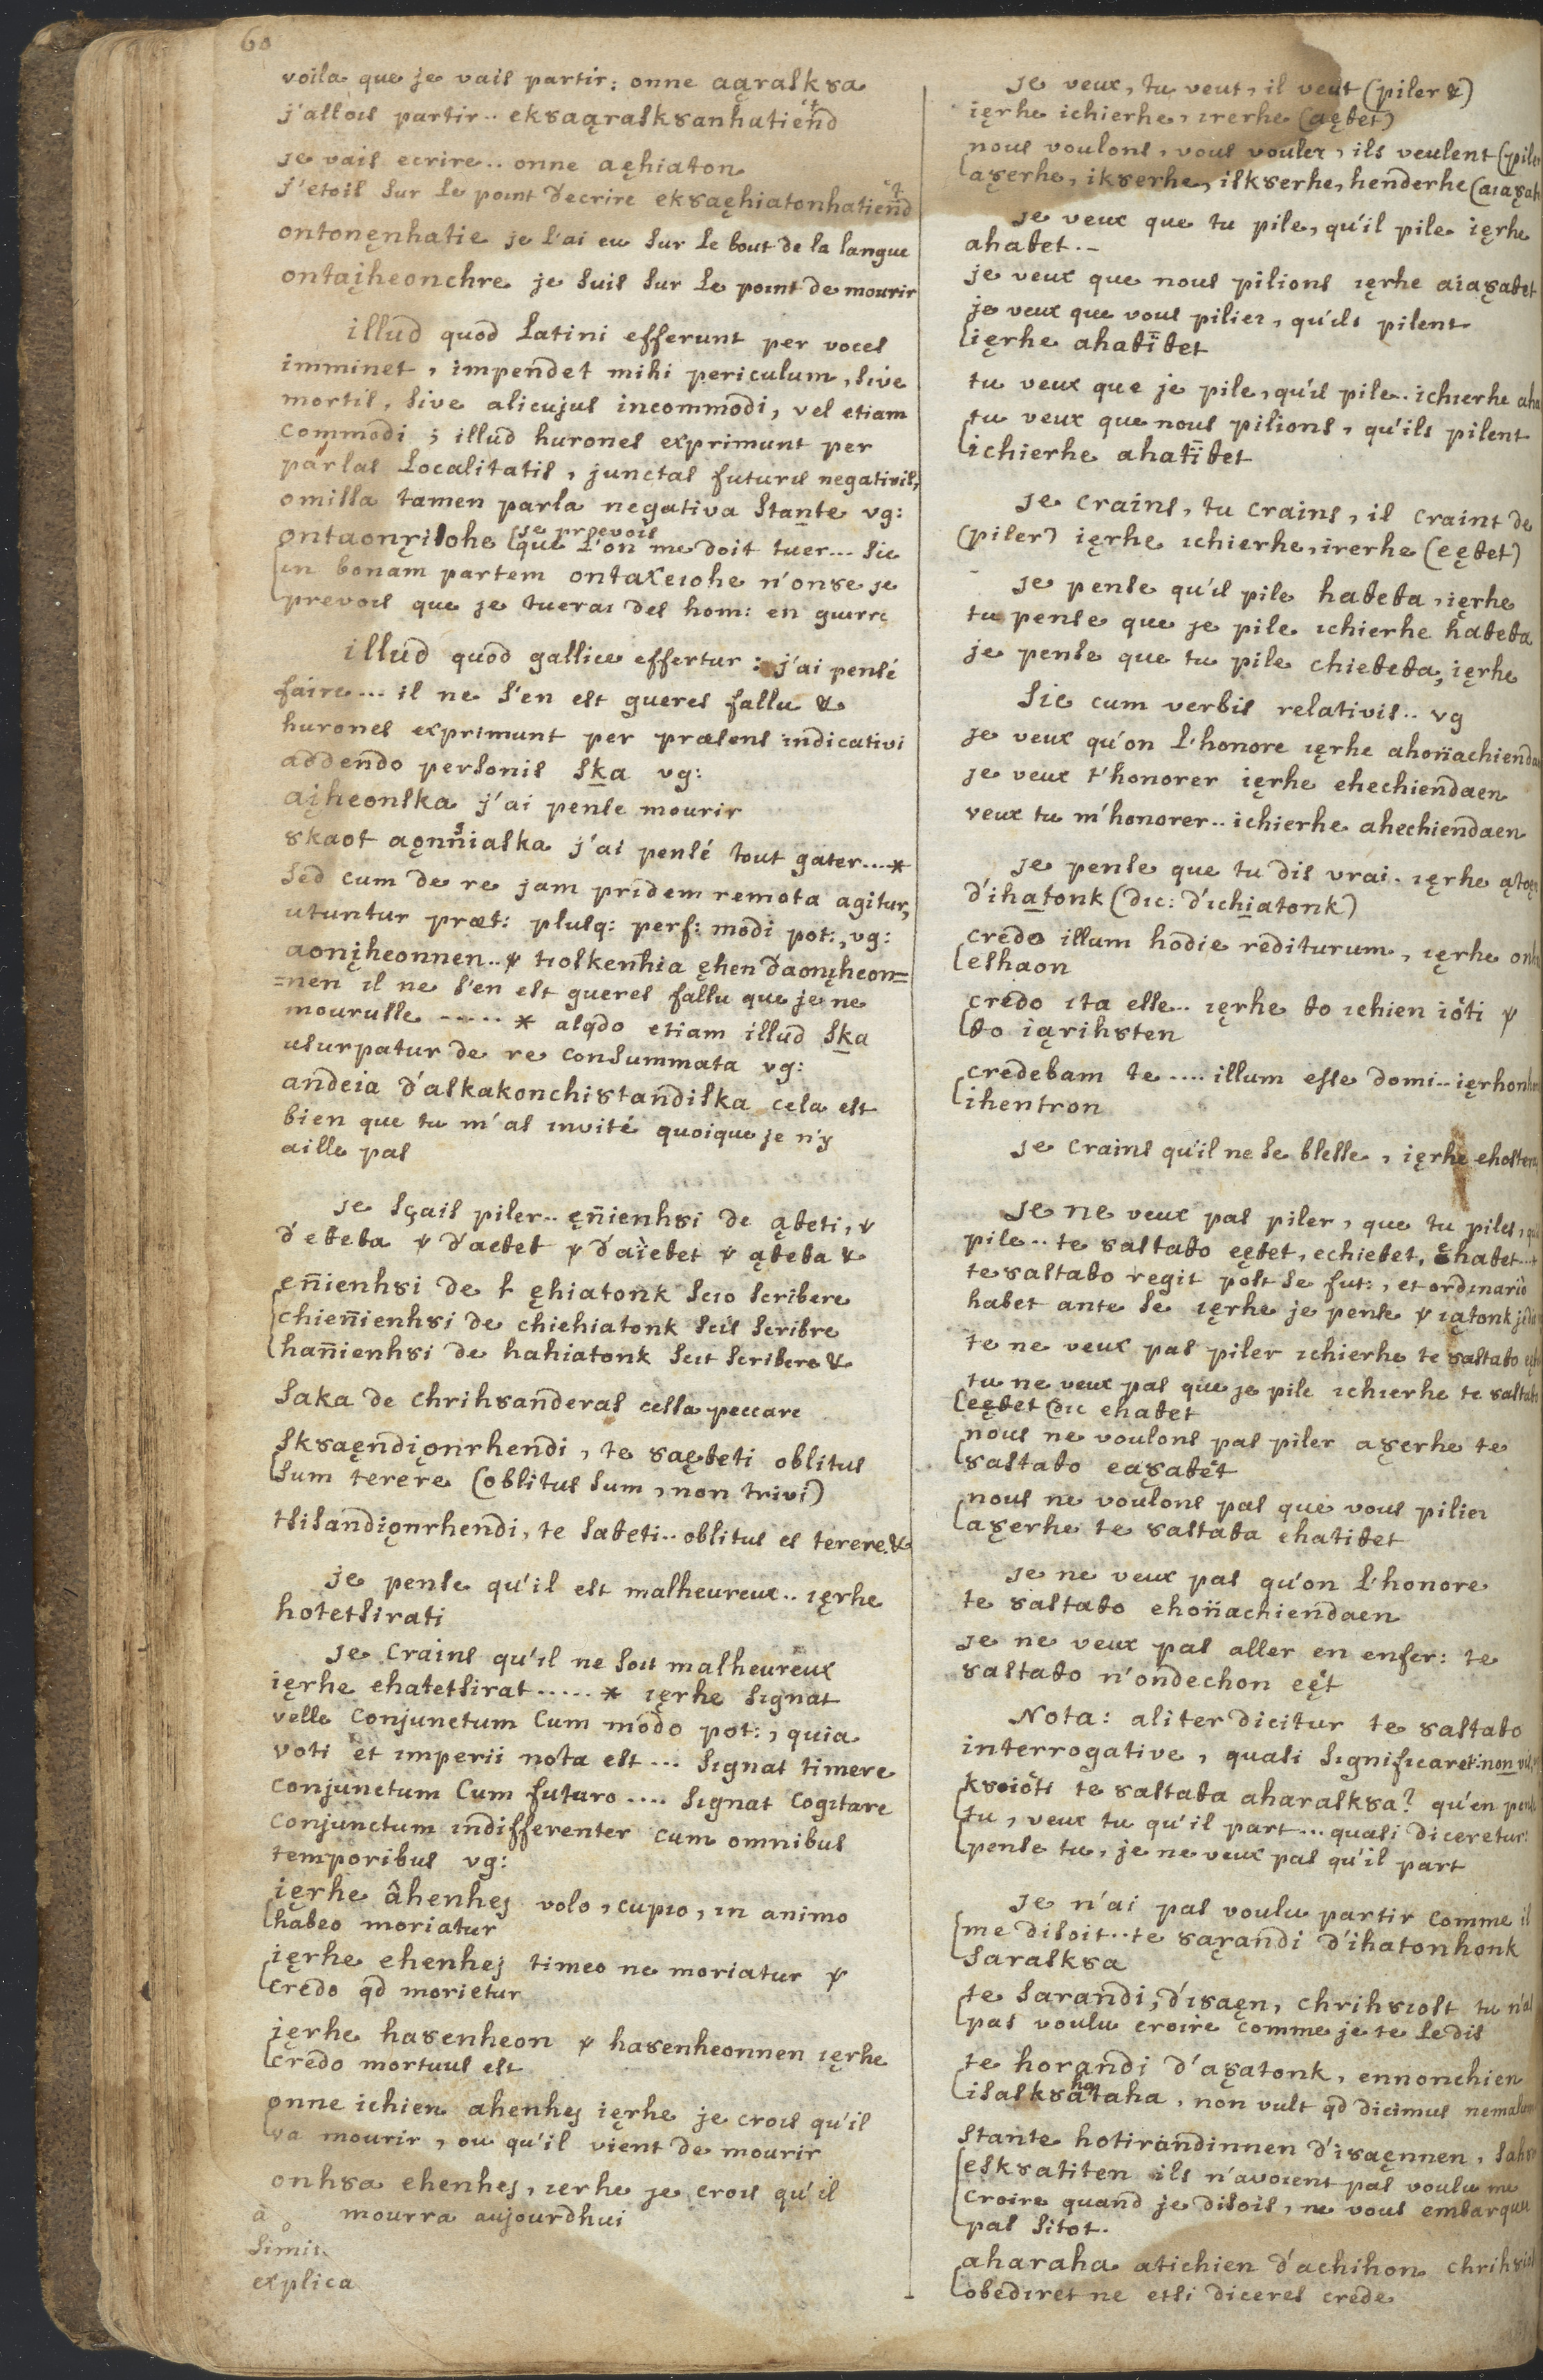 60
voila que je vais partir: onne aąraskȣa
j'allois partir.. ekȣaąraskȣanhatiend
't
je vais ecrire.. onne aęhiaton
j'etois sur le point d'ecrire ekȣaęhiatonhatiend
't
ontonęnhatie je l'ai eu sur le bout de la langue
ontaįheonchre je suis sur le point de mourir
illud quod Latini efferunt per voces
imminet, impendet mihi periculum, sive
mortis, sive alicujus incommodi, vel etiam
commodi; illud hurones exprimunt per
parlas Localitatis, junctas futuris negativis,
omissa tamen parla negativa stante vg:
je prevois
que l'on me doit tuer... sic
in bonam partem ontaxeiohe n'onȣe je
prevois que je tuerai des hom: en guerre
illud quod gallice effertur: j'ai pensé
faire... il ne s'en est gueres fallu &
hurones exprimunt per præsens indicativi
addendo personis ska vg:
aįheonska j'ai pense mourir
j'ai pensé tout gater....*
sed cum de re jam pridem remota agitur,
utuntur præt: plusq: perf: modi pot:, vg:
aonįheonnen.. ꝟ tioskenhia ęhen d'aonįheon=
=nen il ne s'en est gueres fallu que je ne
mourusse ----- * alqdo etiam illud ska
usurpatur de re consummata vg:
andeia d'askakonchiȣtandiska cela est
bien que tu m'as invité quoique je n'y
aille pas
je sçais piler.. ęn̈ienhȣi de ąȣeti, ꝟ
en̈ienhȣi de t ęhiatonk scio scribere
chien̈ienhȣi de chiehiatonk scis scribre
han̈ienhȣi de hahiatonk scit scribere &
saka de chrihȣanderas cessa peccare
skȣaęndiǫnrhendi, te ȣaęteti oblitus
sum terere (oblitus sum, non trivi)
tsisandiǫnrhendi, te sateti.. oblitus es terere &
je pense qu'il est malheureux.. ięrhe
hotetsirati
je crains qu'il ne soit malheureux
ięrhe ehatetsirat.....* ięrhe signat
velle conjunctum cum modo pot:, quia
voti et imperii nota est... signat timere
conjunctum cum futuro.... signat cogitare
conjunctum indifferenter cum omnibus
temporibus vg:
ięrhe âhenhej volo, cupio, in animo
habeo moriatur
ięrhe ehenhej timeo ne moriatur ꝟ
credo qd morietur
ięrhe haȣenheon ꝟ haȣenheonnen ięrhe
credo mortuus est
onne ichien ahenhej ięrhe je crois qu'il
va mourir, ou qu'il vient de mourir
onhȣa ehenhej, ierhe je crois qu'il
mourra aujourdhui
à
simi
explica
je veux, tu veut, il veut (piler &)
ięrhe ichierhe, irerhe (aętet)
nous voulons, vous voulez, ils veulent (piler
aȣerhe, ikȣerhe, iskȣerhe, henderhe
je veux que tu pile, qu'il pile ięrhe
ahatet.-
je veux que nous pilions ięrhe aiaȣatet
je veux que vous piliez, qu'ils pilent
ięrhe ahatïtet
tu veux que je pile, qu'il pile.. ichierhe aha
tu veux que nous pilions, qu'ils pilent
ichierhe ahatïtet
je crains, tu crains, il craint de
(piler) ięrhe ichierhe, irerhe (eętet)
je pense qu'il pile hateta, ięrhe
tu pense que je pile ichierhe hateta
je pense que tu pile chieteta, ięrhe
sic cum verbis relativis.. vg
je veux qu'on l'honore ięrhe ahon̈achienda
je veux t'honorer ięrhe ehechiendaen
veux tu m'honorer.. ichierhe ahechiendaen
je pense que tu dis vrai. ięrhe
d'ihatonk (dic: d'ichiatonk)
credo illum hodie rediturum, ięrhe
eshaon
credo ita esse.. ięrhe to ichien iöti ꝟ
to ięrihȣten
credebam te.... illum esse domi..
ihentron
je crains qu'il ne se blesse, ięrhe
je ne veux pas piler, que tu piles,
pile.. te ȣastato eętet, echietet, ehatet..
te ȣastato regit post se fut:, et ordinario
habet ante se ięrhe je pense ꝟ iątonk
te ne veux pas piler ichierhe te ȣastato
tu ne veux pas que je pile ichierhe te
eętet dic ehatet
nous ne voulons pas piler aȣerhe te
ȣastato eaȣatet
nous ne voulons pas que vous piliez
aȣerhe te ȣastata ehatitet
je ne veux pas qu'on l'honore
te ȣastato ehon̈achiendaen
je ne veux pas aller en enfer: te
ȣastato n'ondechon eęt
Nota: aliter dicitur te ȣastato
interrogative, quasi significaret: non
te ȣastata aharaskȣa? qu'en
tu, veux tu qu'il part... quasi diceretur:
pense tu, je ne veux pas qu'il part
je n'ai pas voulu partir comme il
me disoit.. te ȣarandi d'ihatonhonk
saraskȣa
te sarandi, d'iȣaęn, chrihȣiost tu n'as
pas voulu croire comme je te le dis
te horandi d'aȣatonk, ennonchien
non vult qd dicimus
stante hotirandinnen d'iȣaęnnen,
eskȣatiten ils n'avoient pas voulu me
croire quand je disois, ne vous
pas sitot.
aharaha atichien d'achihon
obediret ne etsi diceres crede